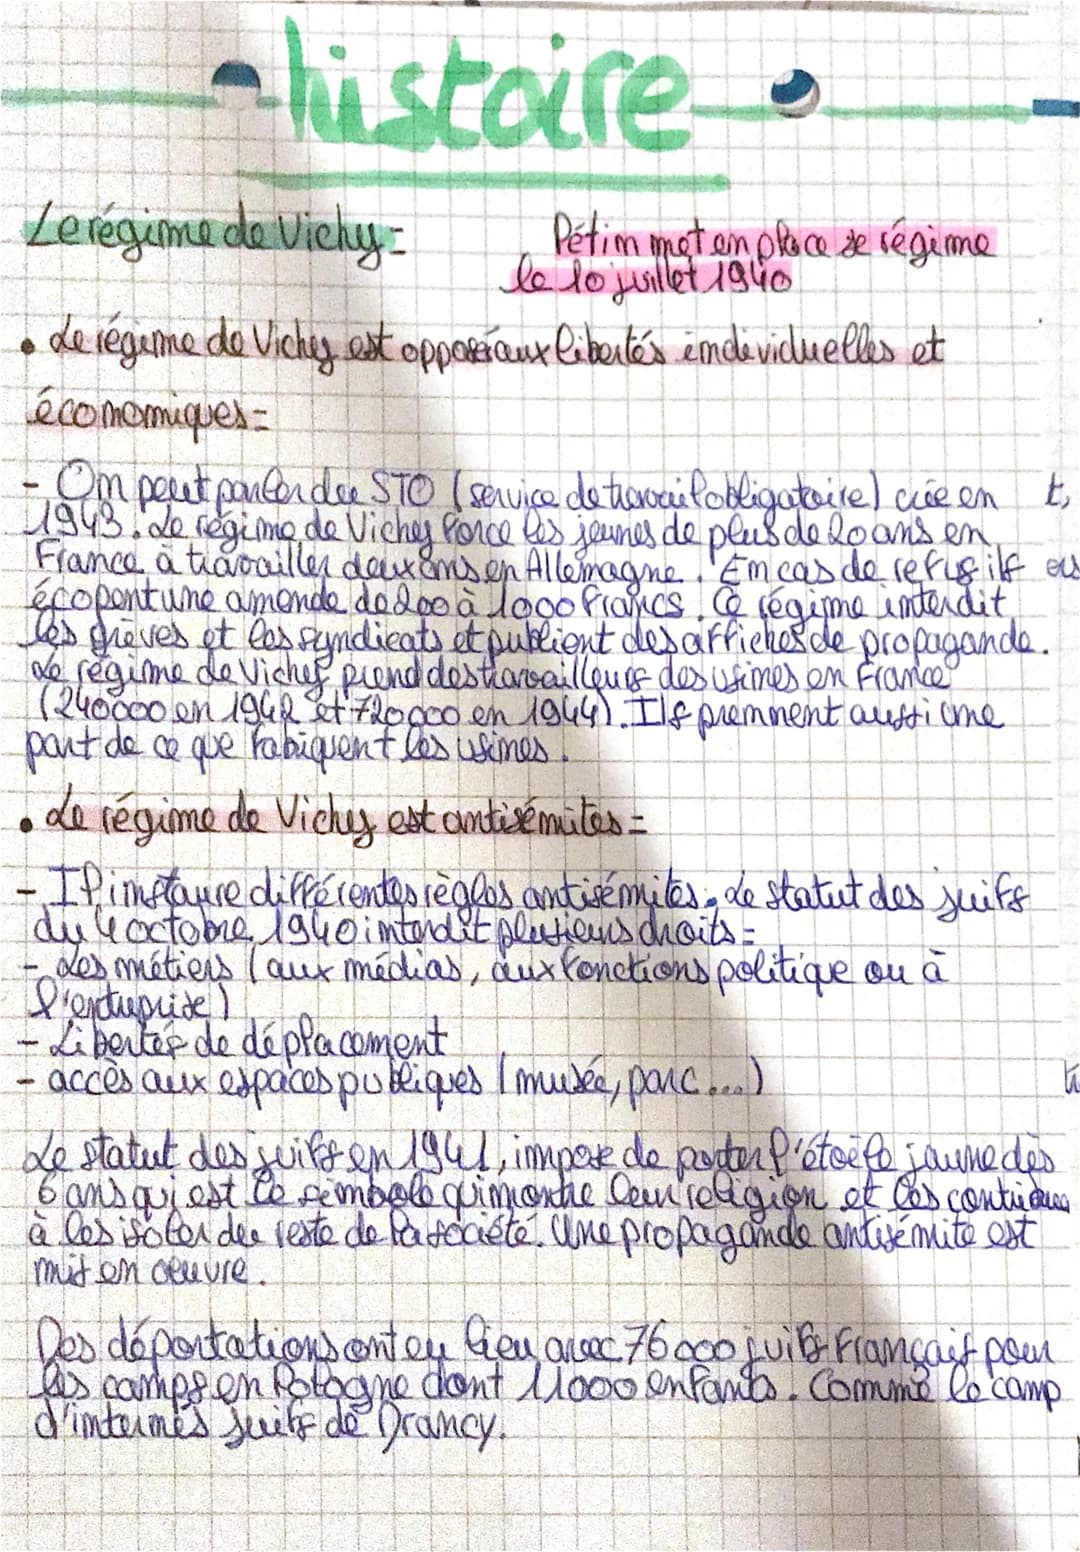 histoire
Le régime de Vichy = Pétim met en place se régime
le 10 juillet 1940
• Le régime de Vichy est opposé aux libertés individuelles et
économiques =
- On peut parler du STO (service de travail obligatoire) crée en
1943. Le régime de Vichy force les jeunes de plus de 20 ans en
France à travailler deux ans en Allemagne. En cas de refus ils
écopent une amende de 200 à 1000 francs. Ce régime interdit
les grèves et les syndicats et publient des affiches de propagande.
Le régime de Vichy prend des travailleurs des usines en France
(240000 en 1942 et 720000 en 1944). Ils prennent aussi une
part de ce que fabiquent les usines.
• Le régime de Vichy est antisémites =
- Il instaure différentes règles antisémites. Le statut des juifs
du 4 octobre 1940 interdit plusieurs droits =
- Les métiers (aux médias, aux fonctions politique ou à
l'entreprise)
- Libertés de déplacement
- accès aux espaces publiques (musée, parc...)
Le statut des juifs en 1941, impose de porter l'étoile jaune dès
6 ans qui est le simbole qui montre leur religion et les
à les isoler du reste de la société. Une propagande antisémite est
mis en oeuvre.
Des déportations ont eu lieu avec 76000 juifs Français pour
les camps en Pologne dont 11000 enfants. Comme le camp
d'internés juifs de Drancy.